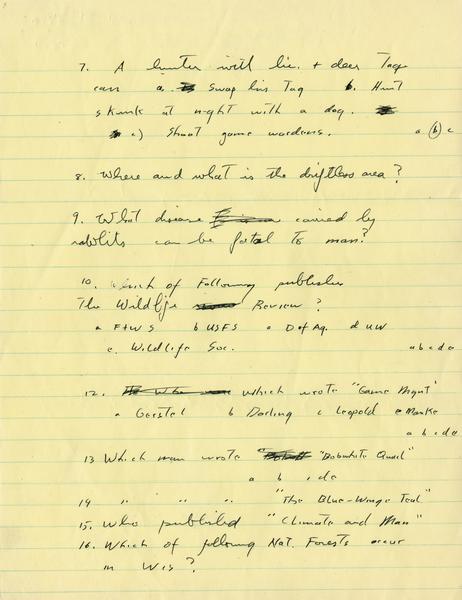 7. A hunter with lic. + deer Tag
can a. Swap his Tag b. Hunt
skunk at night with a dog.
c) Shoot game wardens. a b c
8. Where and what is the driftless area?
9. What disease carried by
rabbits can be fatal to man?
10. Which of Following publishes
The Wildlife Review?
a F+WS b USFS c D of Ag. d UW
e. Wildlife Soc. a b c d e
12. which wrote "Game Mgnt"
a Gerstel b Darling c Leopold e
a b c d e
13 Which man wrote "Bobwhite Quail"
a b c d e
14 " " " "The Blue-Winge Teal"
15. Who published "Climate and Man"
16. Which of following Nat. Forests occur
in Wis?